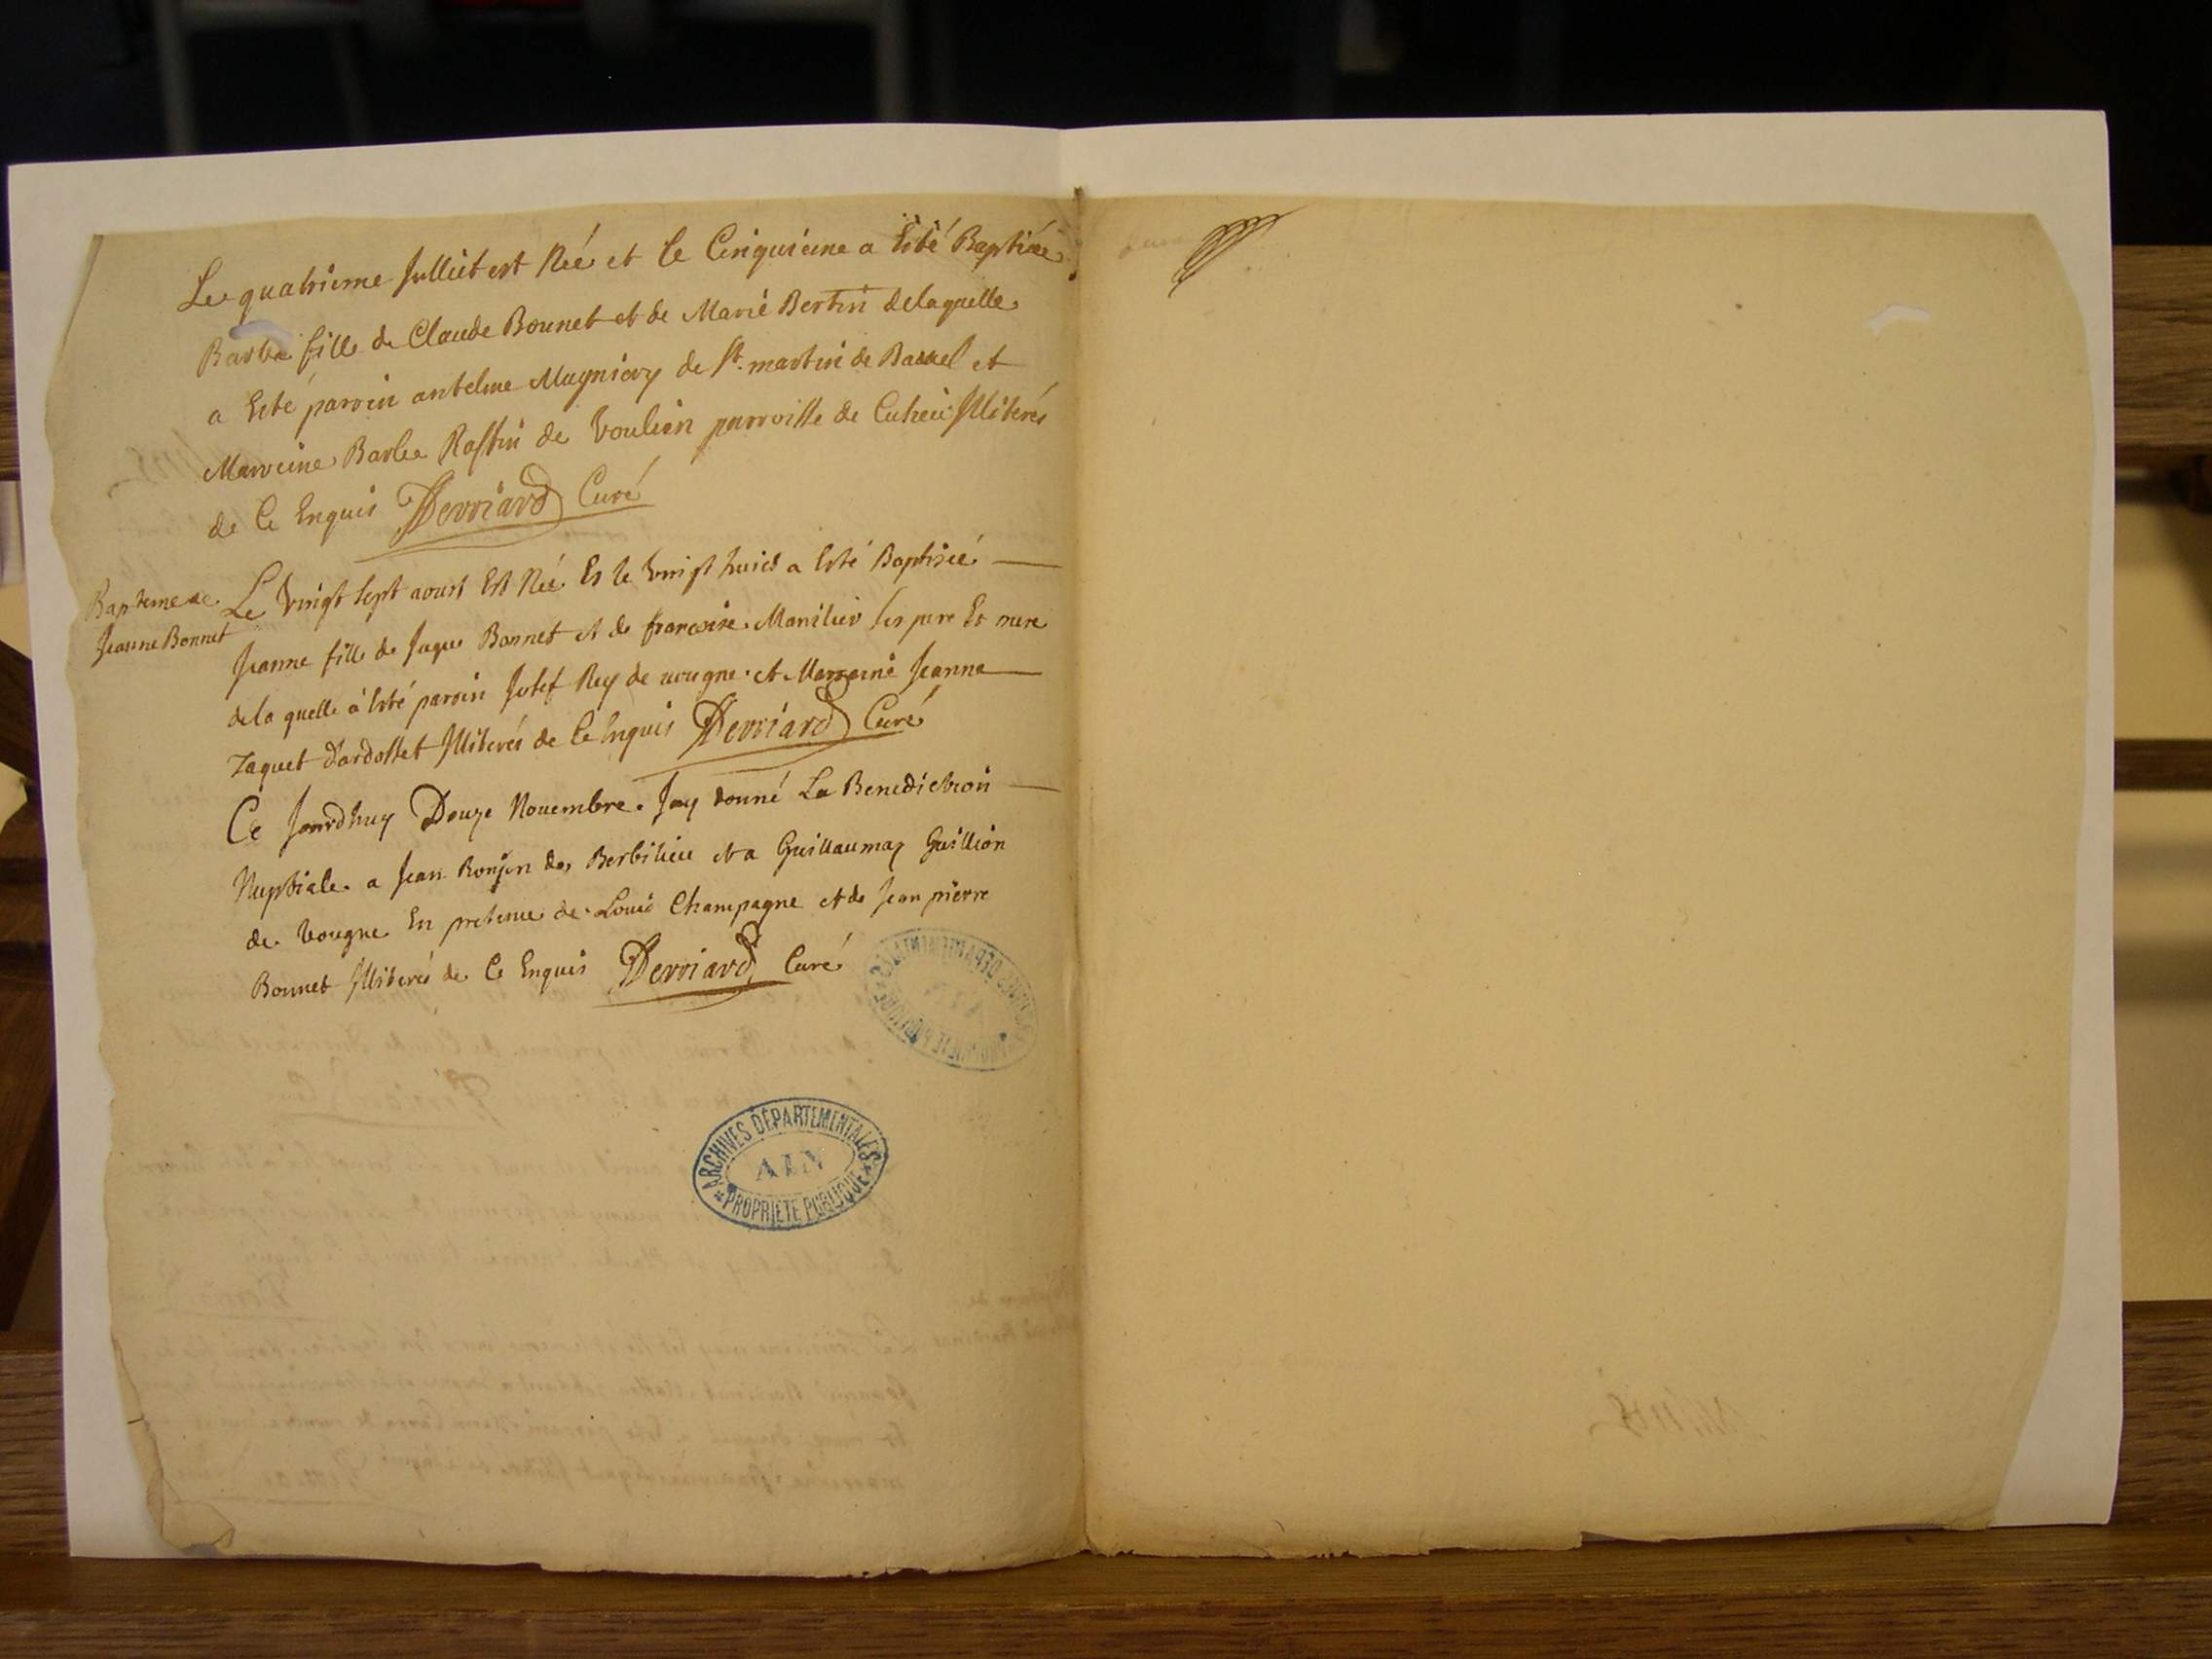 Le quatrieme Julliet est Née et le Cinquieme a Esté Baptisée
Barbe fille de Claude Bonnet et de Marie Bertin delaquelle
a Esté parrin antelme Mugniery de St. martin de Bavel et
Marreine Barbe Raffin de Voulien parroisse de Cuheiu Illiterés
de Ce Enquis Derriard Curé
Bapteme de
Jeanne Bonnet
Le Vingt Sept aoust Est Née Et le Vingt huict a Esté Baptisée
Jeanne fille de Jaque Bonnet et de francoise Manilier ses pere Et mere
dela quelle à Esté parrin Josef Rey de vougne et Marreine Jeanne
Jaquet dardosset Illiterés de Ce Enquis Derriard Curé
Ce Jourdhuy Douze Novembre Jay donné La Benediction
Nuptiale a Jean Ronjon de Berbilieu et a Guillaumaz Guillion
de Vougne En presence de Louis Champagne et de Jean pierre
Bonnet Illiterés de Ce Enquis Derriard Curé
ARCHIVES DÉPARTEMENTALES
AIN
PROPRIÉTÉ PUBLIQUE